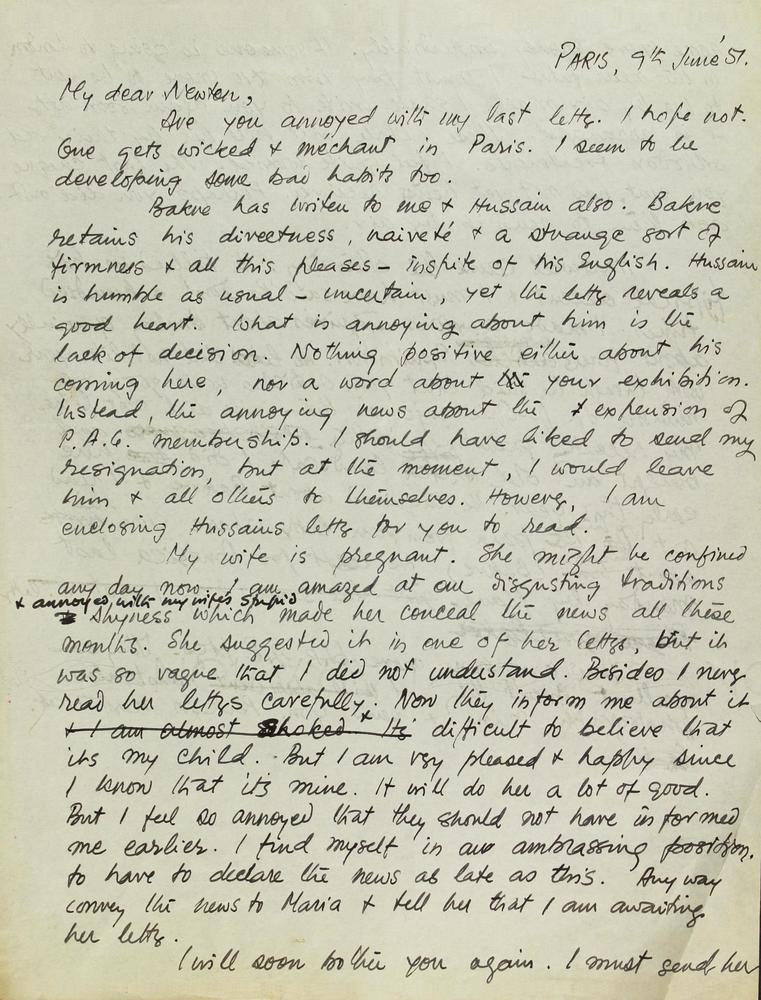 PARIS, 9th June '51.
My dear Newton,
Are you annoyed with my last letter. I hope not.
One gets wicked & méchant in Paris. I seem to be
developing some bad habits too.
Bakre has written to me & Hussain also. Bakre
retains his directness, naiveté & a strange sort of
firmness & all this pleases – inspite of his English. Hussain
is humble as usual – uncertain, yet the letter reveals a
good heart. What is annoying about him is the
lack of decision. Nothing positive either about his
coming here, nor a word about your exhibition.
Instead, the annoying news about the expension of
P.A.G. membership. I should have liked to send my
resignation, but at the moment, I would leave
him & all others to themselves. However, I am
enclosing Hussains letter for you to read.
My wife is pregnant. She might be confined
any day now. I am amazed at our disgusting traditions
& annoyed, with my wifes stupid
shyness which made her conceal the news all these
months. She suggested it in one of her letters, but it
was so vague that I did not understand. Besides I never
read her letters carefully. Now they inform me about it
& I am almost shoked & Its difficult to believe that
its my child. But I am very pleased & happy since
I know that it's mine. It will do her a lot of good.
But I feel so annoyed that they should not have informed
me earlier. I find myself in an ambrassing position.
to have to declare the news as late as this. Any way
convey the news to Maria & tell her that I am awaiting
her letter.
I will soon bother you again. I must send her